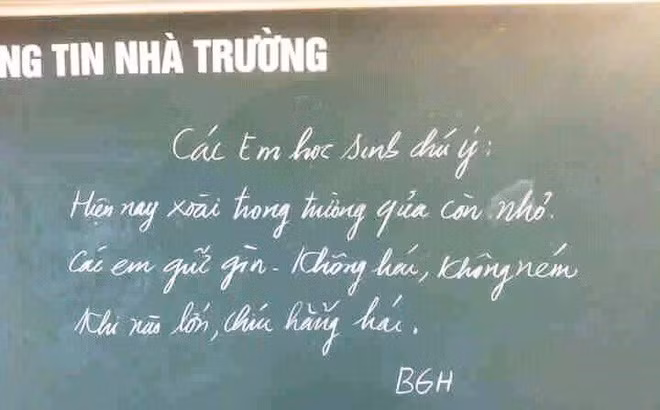 NG TIN NHÀ TRƯỜNG
Các Em học sinh chú ý:
Hiện nay xoài trong trường qủa còn nhỏ.
Các em giữ gìn - Không hái, không ném
Khi nào lớn, chín hẵng hái.
BGH